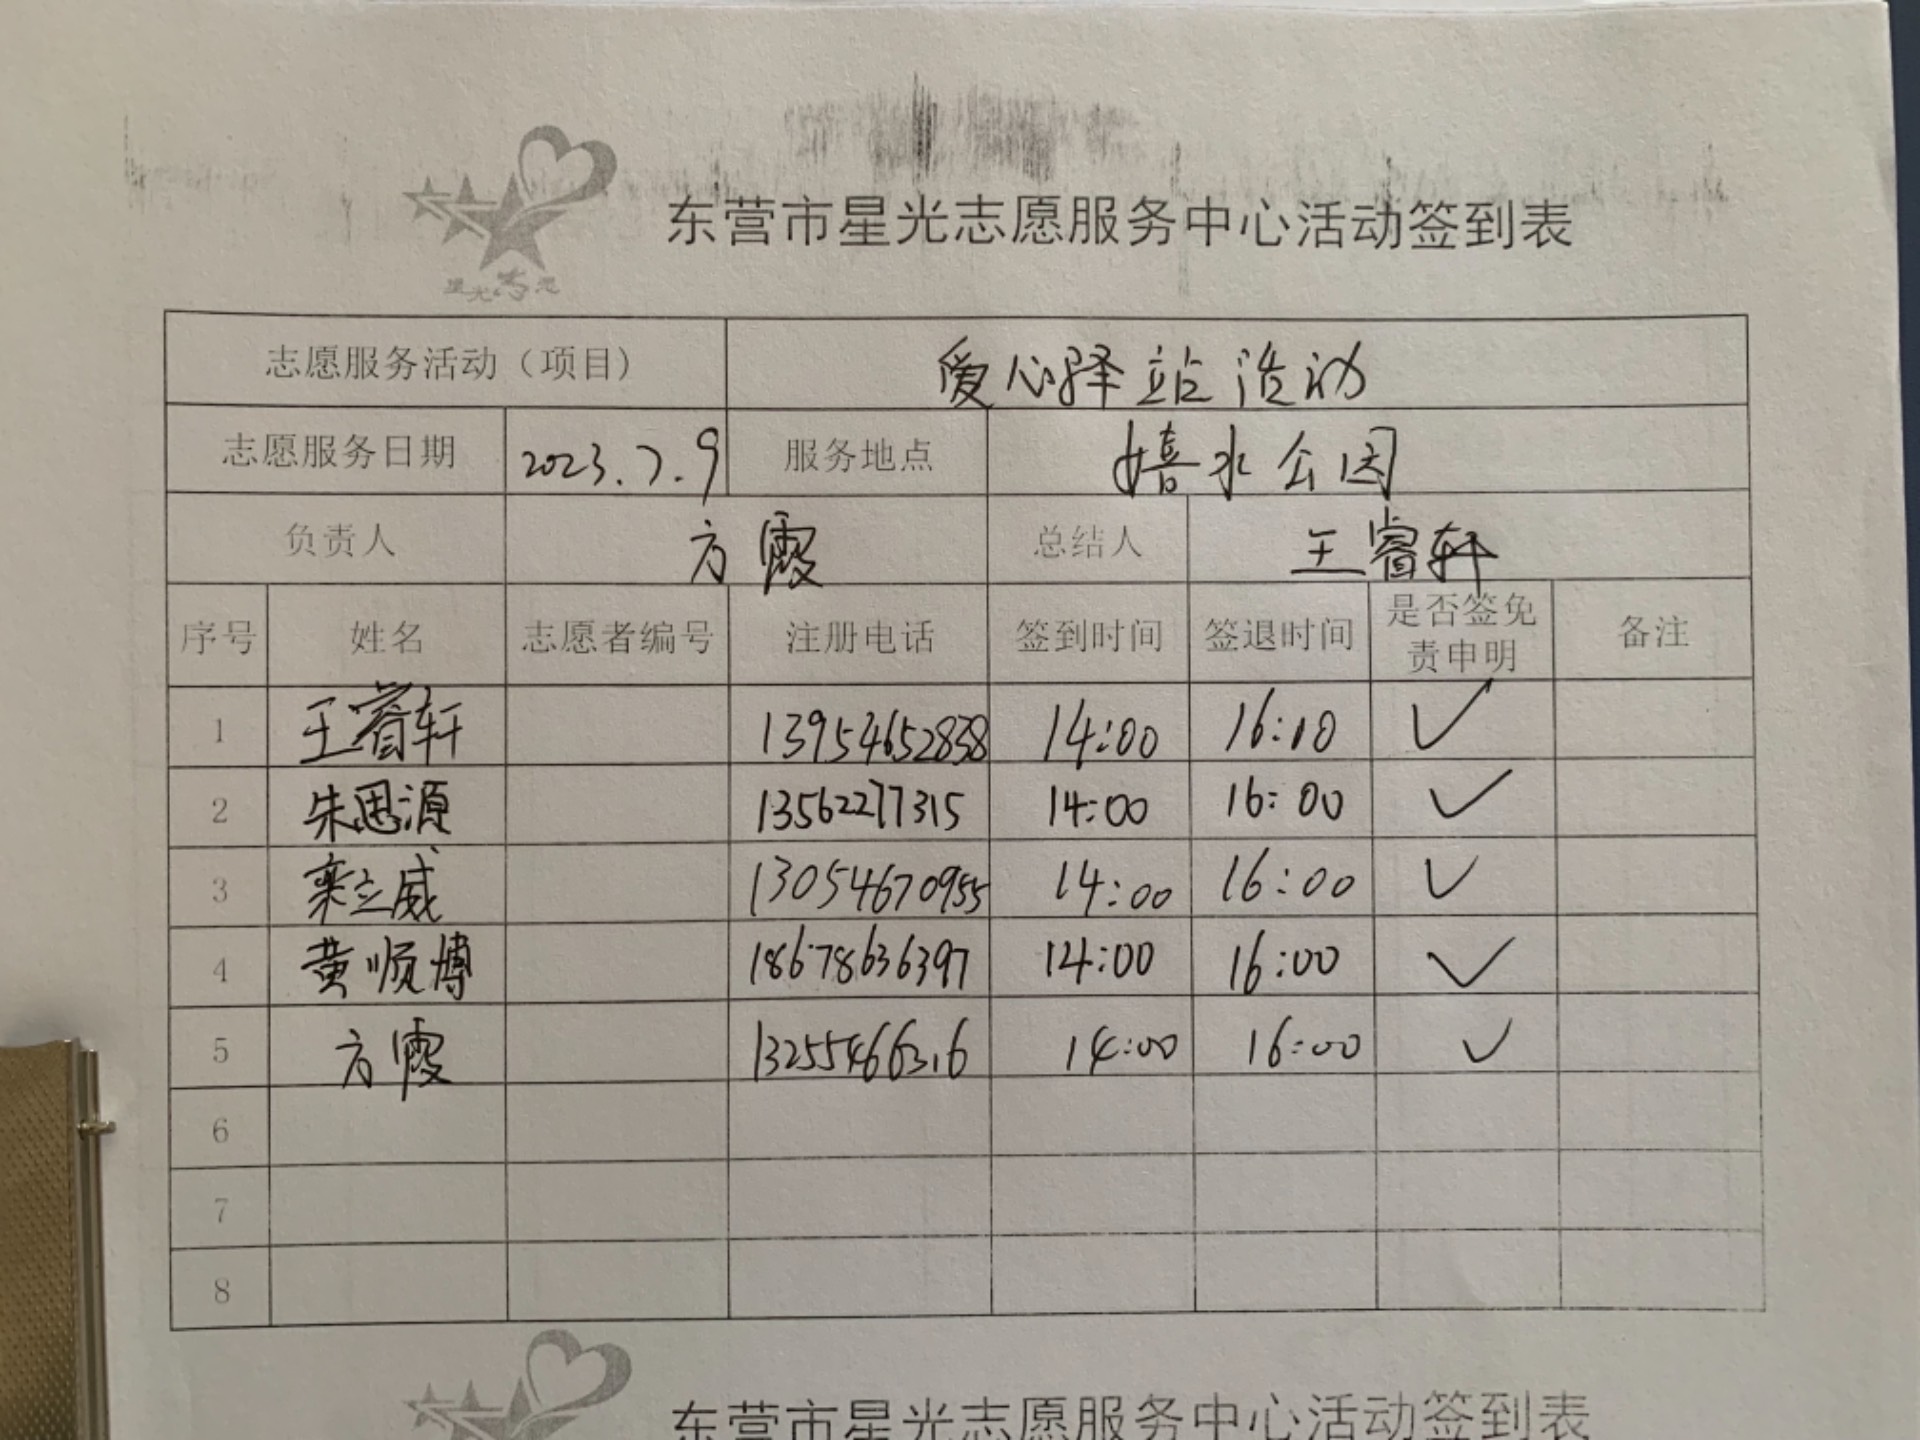 东营市星光志愿服务中心活动签到表
星光志愿
志愿服务活动（项目） 爱心驿站活动
志愿服务日期 2023.7.9 服务地点 嬉水公园
负责人 方霞 总结人 王睿轩
序号 姓名 志愿者编号 注册电话 签到时间 签退时间 是否签免责申明 备注
1 王睿轩 13954652838 14:00 16:10 ✓
2 朱思源 13562277315 14:00 16:00 ✓
3 栾立威 13054670955 14:00 16:00 ✓
4 黄顺博 18678636397 14:00 16:00 ✓
5 方霞 13255466316 14:00 16:00 ✓
6
7
8
东营市星光志愿服务中心活动签到表